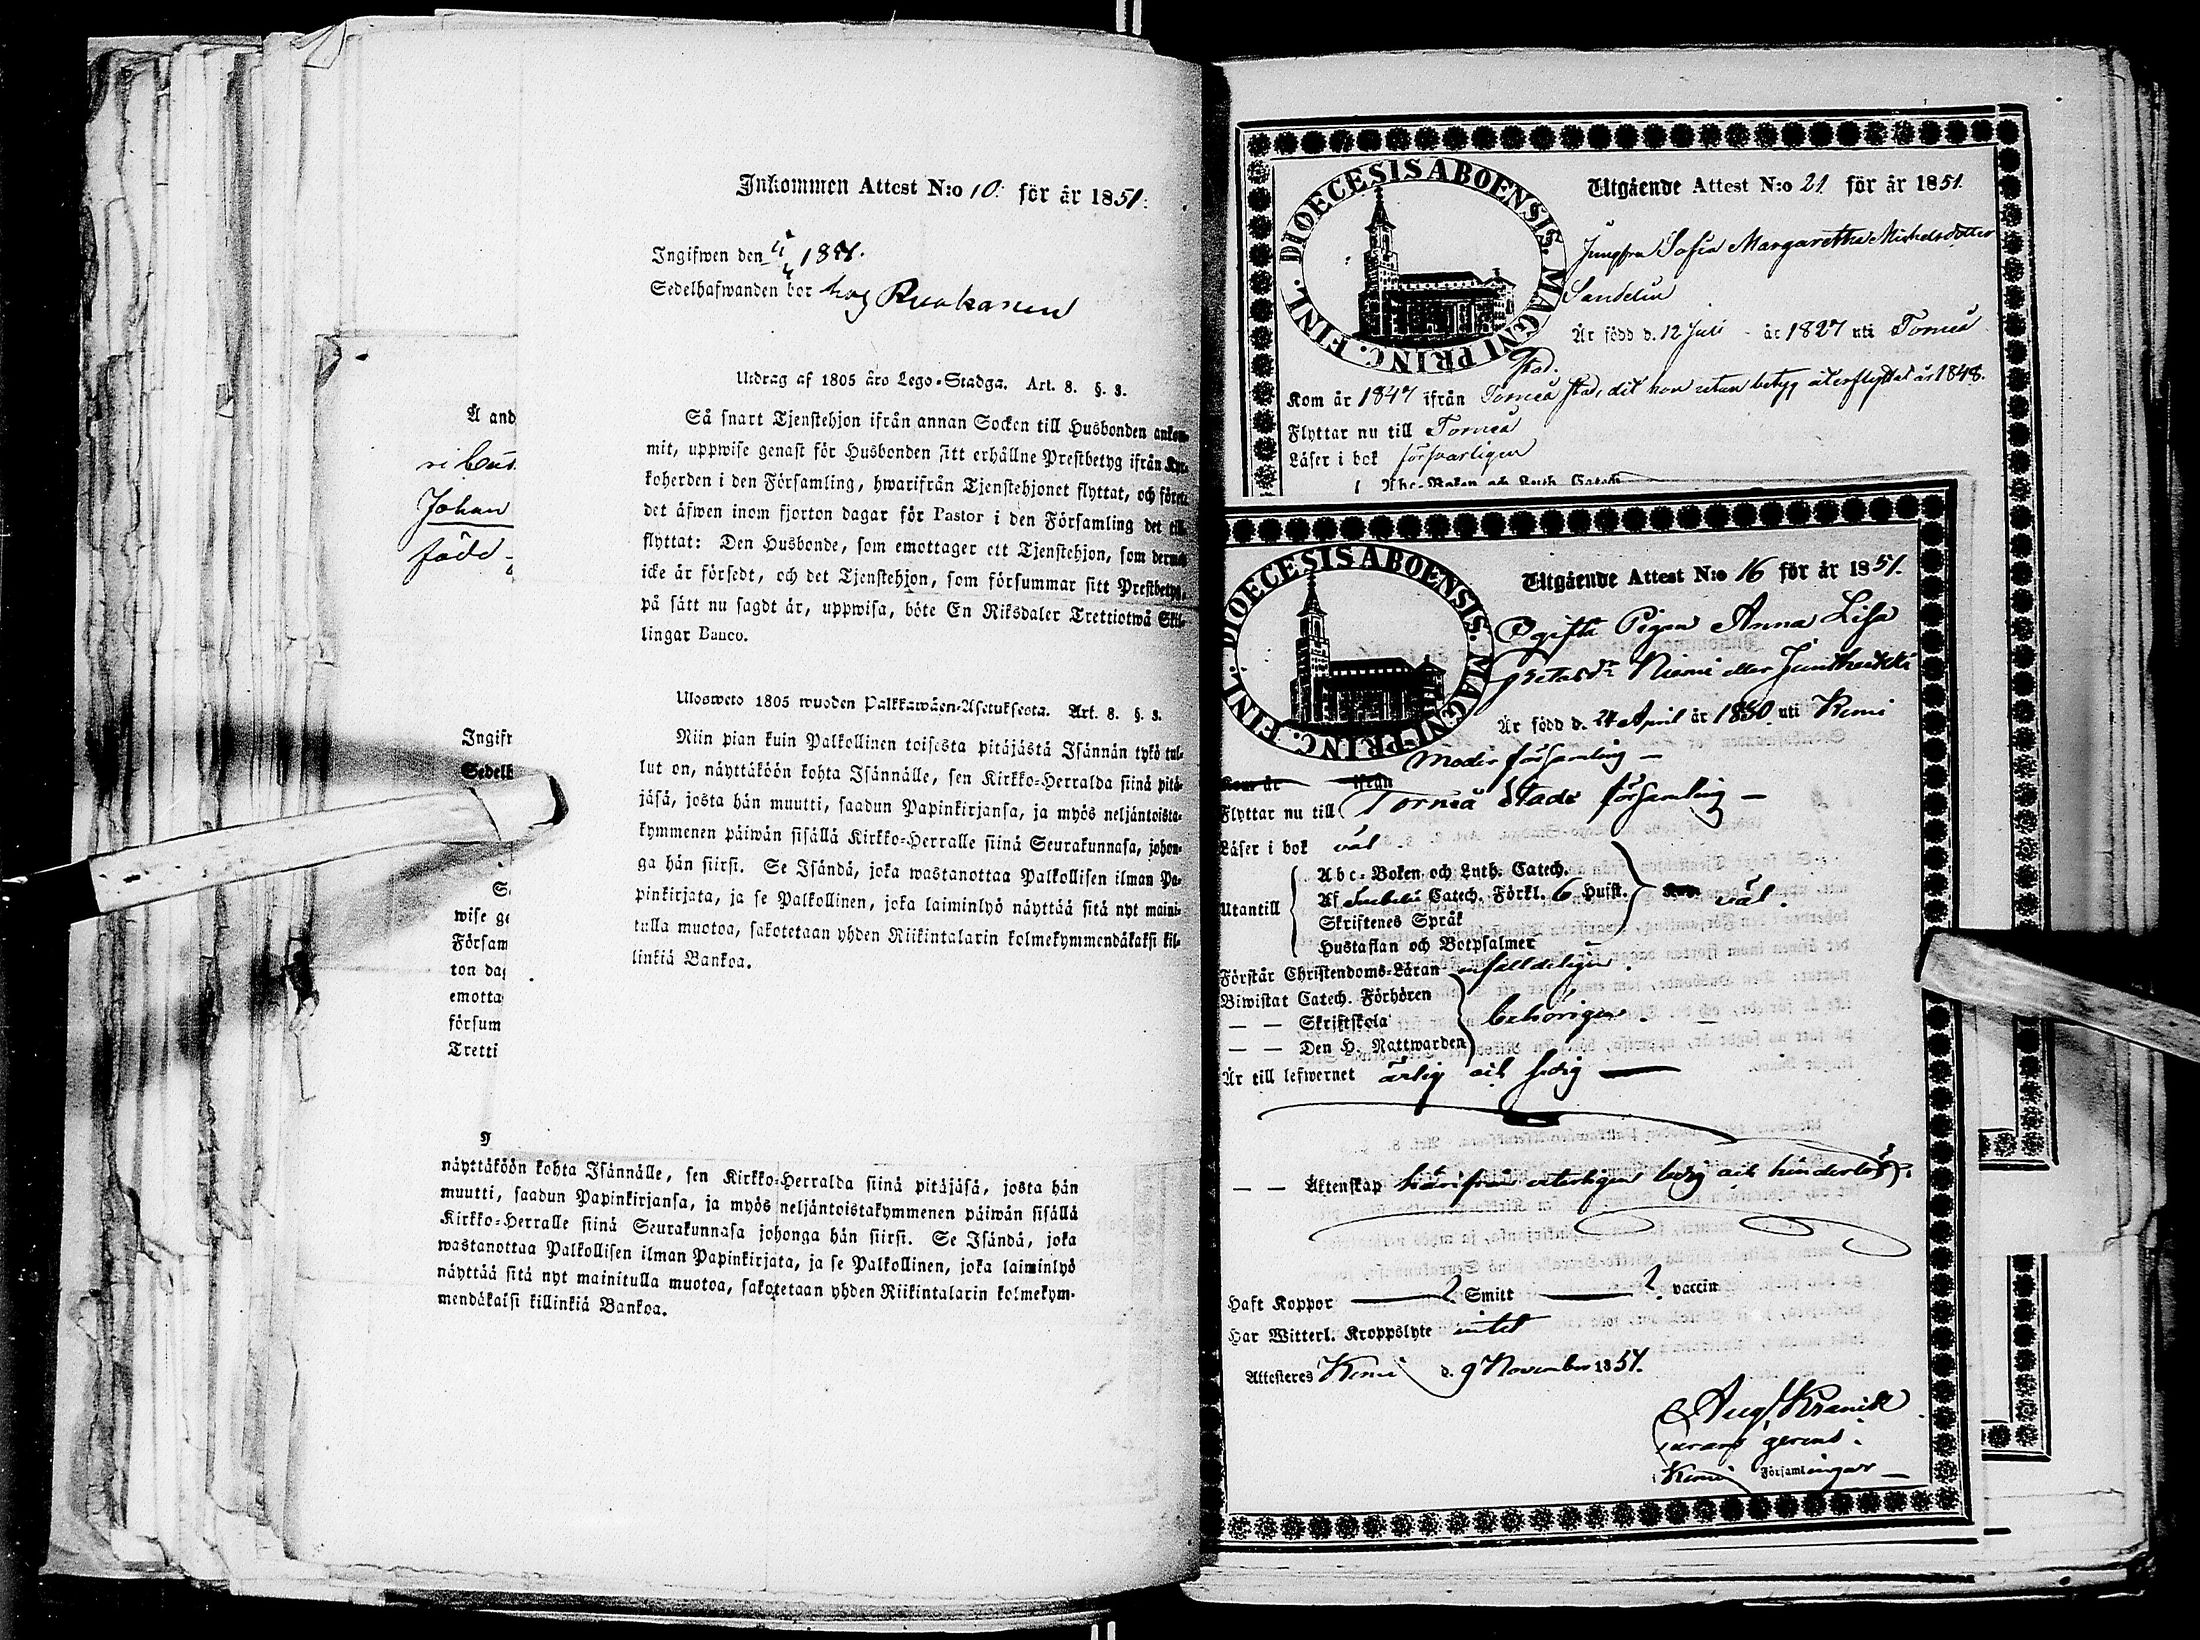 Inkommen Attest N:o 10. för år 1851.
Ingifwen den 4/4 1851.
Sedelhafwanden bor hos Ruokanen
Utdrag af 1805 års Lego-Stadga. Art. 8. §. 3.
Så snart Tjenstehjon ifrån annan Socken till Husbonden ankom-
mit, uppwise genast för Husbonden sitt erhållne Prestbetyg ifrån Kyr-
koherden i den Församling, hwarifrån Tjenstehjonet flyttat, och förete
det äfwen inom fjorton dagar för Pastor i den Församling det till-
flyttat: Den Husbonde, som emottager ett Tjenstehjon, som dermed
icke är försedt, och det Tjenstehjon, som försummar sitt Prestbetyg,
på sätt nu sagdt är, uppwisa, böte En Riksdaler Trettiotwå Skil-
lingar Banco.
Ulosweto 1805 wuoden Palkkawäen-Asetuksesta. Art. 8. §. 3.
Niin pian kuin Palkollinen toisesta pitäjästä Isännän tykö tul-
lut on, näyttäköön kohta Isännälle, sen Kirkko-Herralda siinä pitä-
jäsä, josta hän muutti, saadun Papinkirjansa, ja myös neljäntoista-
kymmenen päiwän sisällä Kirkko-Herralle siinä Seurakunnasa, johon-
ga hän siirsi. Se Isändä, joka wastanottaa Palkollisen ilman Pa-
pinkirjata, ja se Palkollinen, joka laiminlyö näyttää sitä nyt maini-
tulla muotoa, sakotetaan yhden Riikintalarin kolmekymmendäkaksi kil-
linkiä Bankoa.
Å and
Johan
född
Ingifr
Sedelh
S
wise ge
Församl
ton dag
emotta
försum
Tretti
näyttäköön kohta Isännälle, sen Kirkko-Herralda siinä pitäjäsä, josta hän
muutti, saadun Papinkirjansa, ja myös neljäntoistakymmenen päiwän sisällä
Kirkko-Herralle siinä Seurakunnasa johonga hän siirsi. Se Isändä, joka
wastanottaa Palkollisen ilman Papinkirjata, ja se Palkollinen, joka laiminlyö
näyttää sitä nyt mainitulla muotoa, sakotetaan yhden Riikintalarin kolmekym-
mendäkaisi killinkiä Bankoa.
DIOECESIS ABOENSIS. MAGNI PRINC. FINL.
Utgående Attest N:o 21 för år 1851.
Jungfru Sofia Margaretha Mickelsdotter
Sandelin
Är född d. 12 Juli år 1827 uti Torneå
Stad.
Kom år 1847 ifrån Torneå stad, dit hon utan betyg återflyttat år 1848.
Flyttar nu till Torneå
Läser i bok försvarligen
Abc-Boken och Luth. Catech.
DIOECESIS ABOENSIS. MAGNI PRINC. FINL.
Utgående Attest N:o 16 för år 1851.
Ogifta Pigan Anna Lisa
Niemi eller
Är född d. 24 April är 1830 uti Kemi
Moder församling
Kom år ifrån
Flyttar nu till Torneå Stads församling
Läser i bok väl
Utantill
Abc-Boken och Luth. Catech.
Af Svebelii Catech. Förkl. 6 Husst.
Skriftenes Språk
Hustaflan och Botpsalmer
väl.
Förstår Christendoms-Läran enfalldeligen.
Biwistat Catech. Förhören
— — Skriftskola
— — Den H. Nattwarden
behörigen.
Är till lefwernet ärlig och sedig
— — Äktenskap härifrån ledig och hinderlös.
Haft Koppor ? Smitt ? vaccin
Har Witterl. Kroppslyte intet
Attesteras Kemi d. 9 November 1851.
Aug. Kranck
gerens.
i Kemi Församlingar